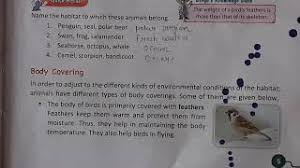 The weight of a bird's feathers is
more than that of its skeleton.
Name the habitat to which these animals belong.
1. Penguin, seal, polar bear
2. Swan, frog, salamander
3. Seahorse, octopus, whale
4. Camel, scorpion, bandicoot
Body Covering
In order to adjust to the different kinds of environmental conditions of the habitat,
animals have different types of body coverings. Some of them are given below.
• The body of birds is primarily covered with feathers
Feathers keep them warm and protect them from
moisture. Thus, they help in maintaining the body
temperature. They also help birds in flying.